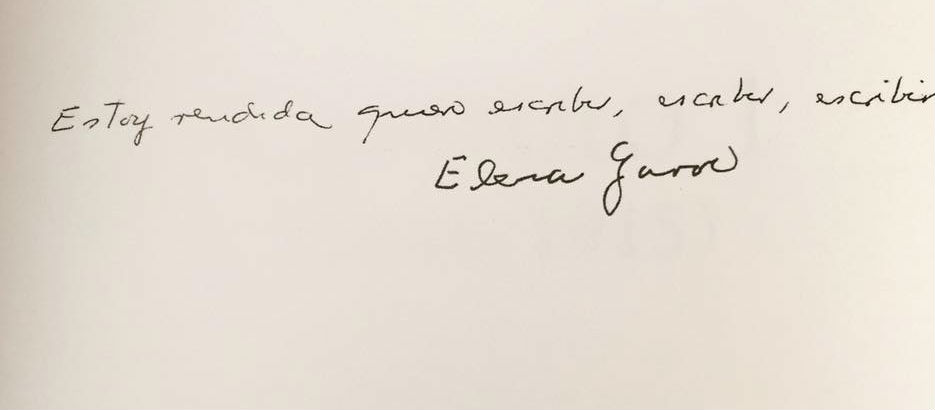 Estoy rendida quiero escribir, escribir, escribir
Elena Garro